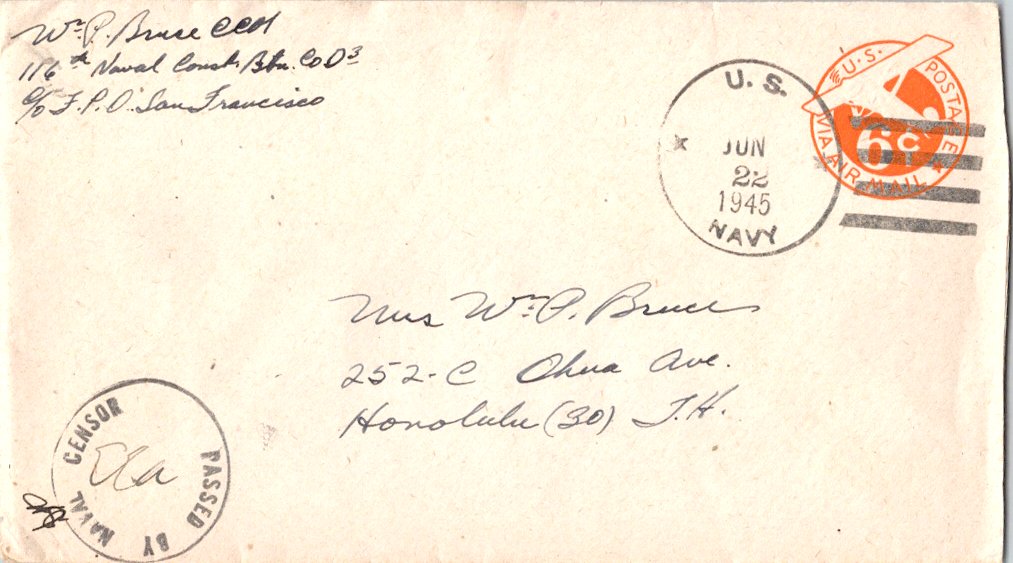 Wm. P. Bruce CCM
116th Naval Const. Btn. Co D3
c/o F.P.O. San Francisco
U.S. POSTAGE
VIA AIR MAIL
6c
U. S.
JUN
22
1945
NAVY
Mrs Wm. P. Bruce
252-C Ohua Ave.
Honolulu (30) T.H.
PASSED BY NAVAL CENSOR